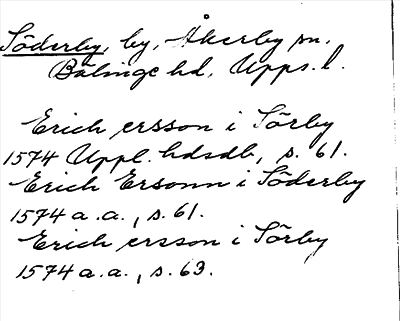 Söderby, by, Åkerby sn,
Bälinge hd, Upps. l.
Erich ersson i Sörby
1574 Uppl. hdsdb, s. 61.
Erich Ersonn i Söderby
1574 a. a., s. 61.
Erich ersson i Sörby
1574 a. a., s. 63.